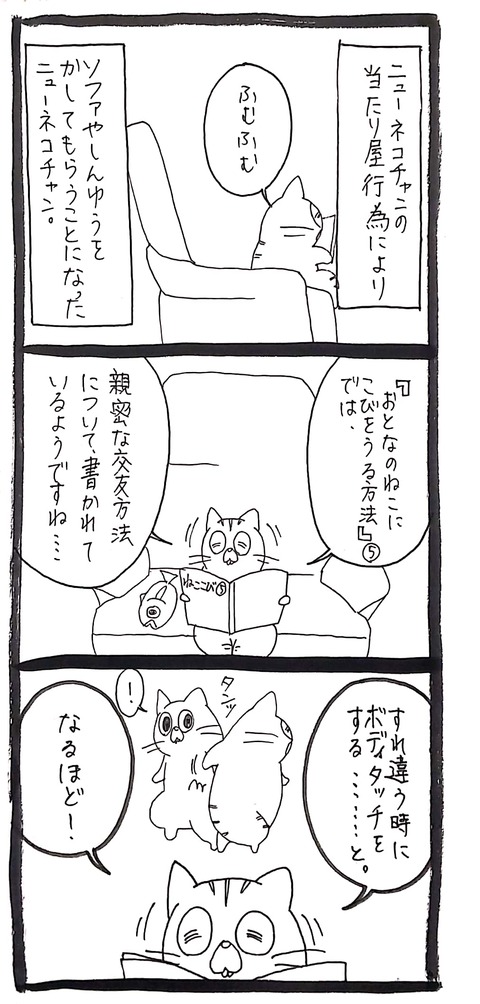 ニューネコチャンの
当たり屋行為により
ふむふむ
ソファやしんゆうを
かしてもらうことになった
ニューネコチャン。
『おとなのねこに
こびをうる方法』⑤
では、
親密な交友方法
について、書かれて
いるようですね…
ねここび⑤
すれ違う時に
ボディタッチを
する………と。
タンッ
!
なるほど!